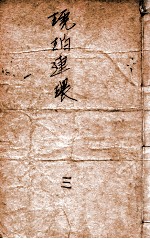 琥珀連環
三